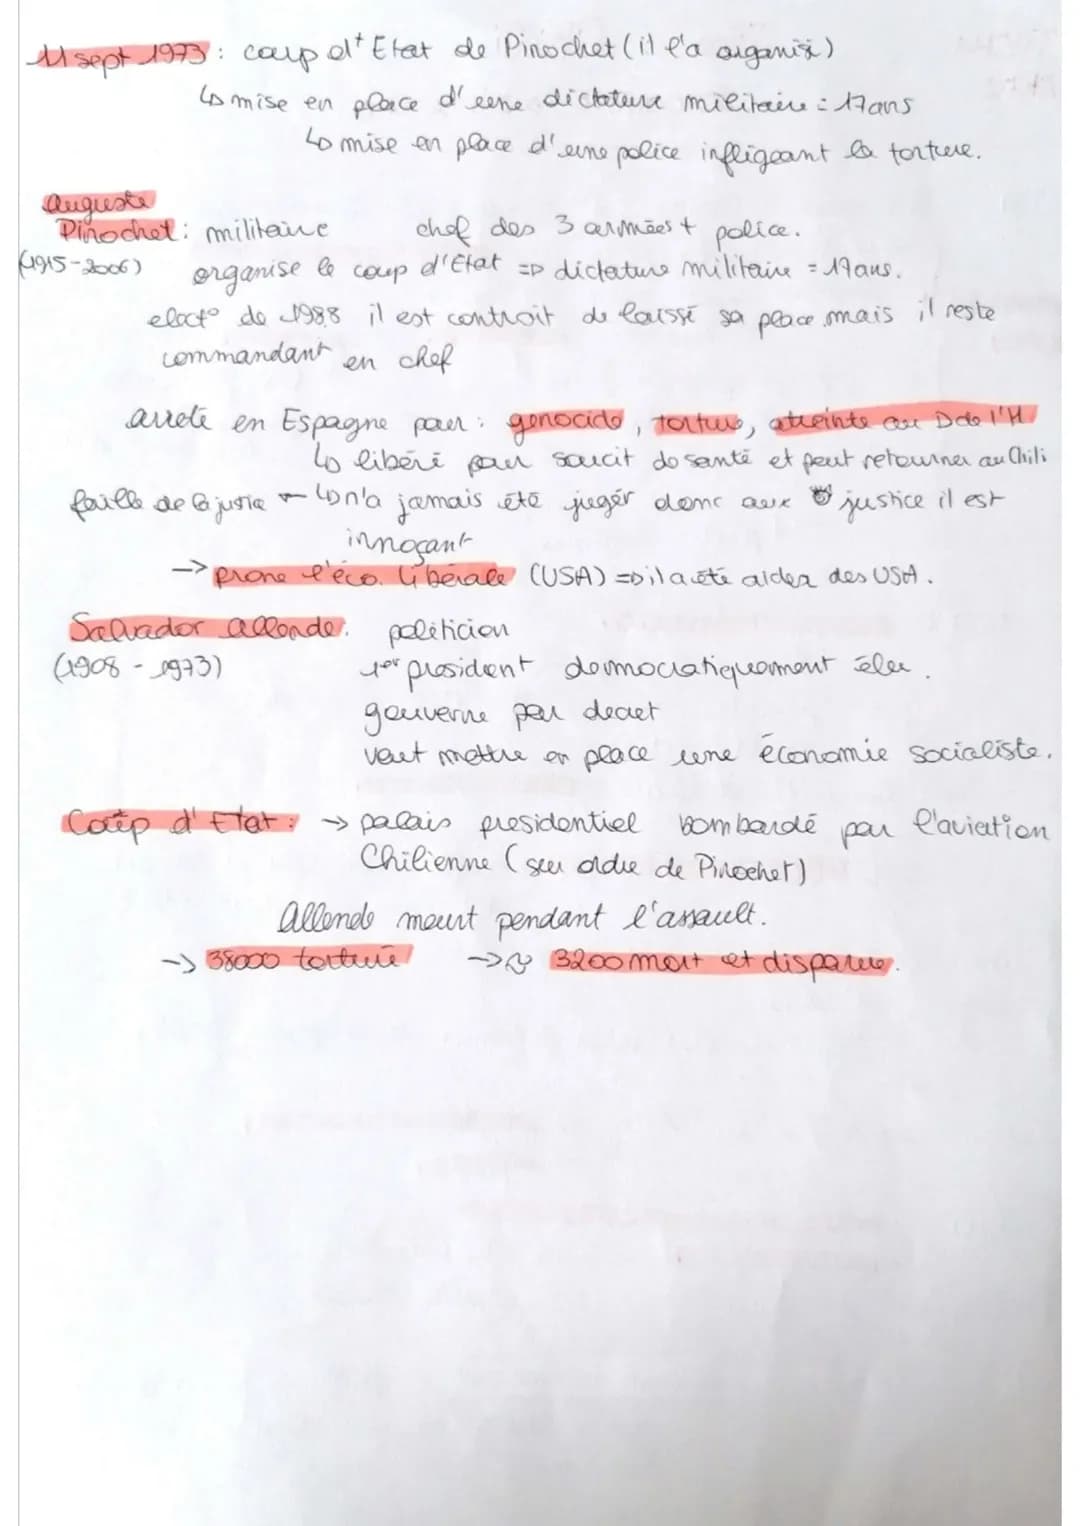 11 sept 1973 : coup d'Etat de Pinochet (il l'a organisé)
↳ mise en place d'une dictature militaire : 17 ans
↳ mise en place d'une police infligeant la torture.
Auguste
Pinochet : militaire chef des 3 armées + police.
(1915-2006) organise le coup d'Etat => dictature militaire = 17 ans.
elect° de 1988 il est controit de laissé sa place mais il reste
commandant en chef
arreté en Espagne pour : genocide, torture, atteinte au D de l'H
↳ libéré pour soucit de santé et peut retourner au Chili
faille de la justice ← ↳ n'a jamais été juger donc aux justice il est
innoçant
-> prone l'éco. libérale (USA) => il a été aider des USA.
Salvador Allende. politicien
(1908 - 1973) 1er president democratiquement élu.
gouverne par decret
veut mettre en place une économie socialiste.
Coup d'Etat : -> palais presidentiel bombardé par l'aviation
Chilienne (sur ordre de Pinochet)
Allende meurt pendant l'assault.
-> 38000 torturé -> ~ 3200 mort et disparue.